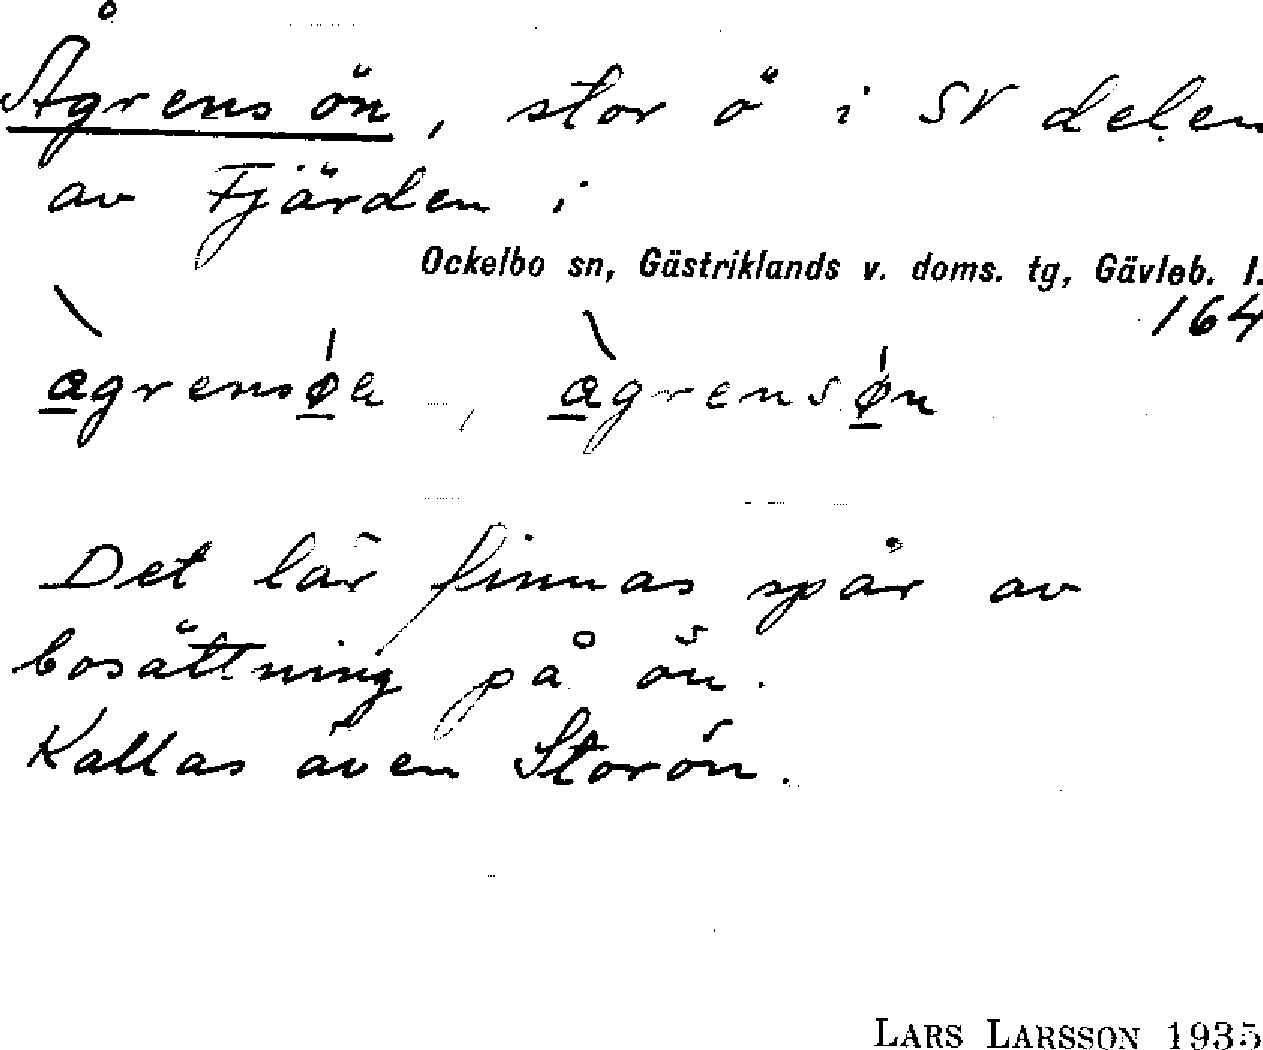 Ågrens ön, stor ö i SV delen
av Fjärden i
Ockelbo sn, Gästriklands v. doms. tg, Gävleb. l.
164
àgrensøa, àgrensøn
Det lär finnas spår av
bosättning på ön.
Kallas även Storön.
LARS LARSSON 1935